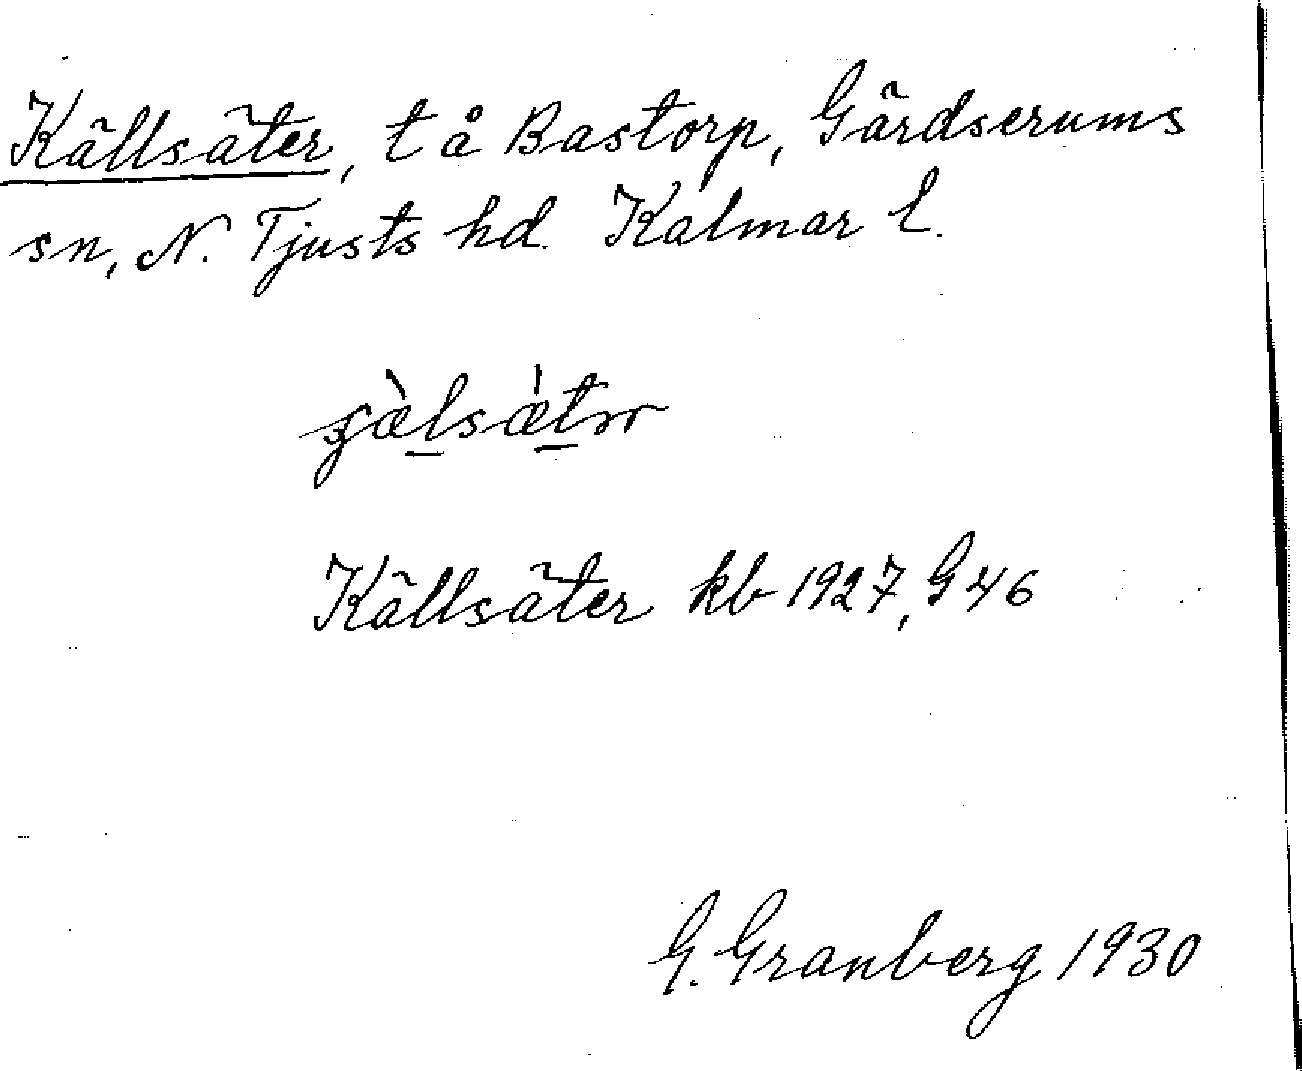 Källsäter, t å Bastorp, Gärdserums
sn, N. Tjusts hd. Kalmar l.
Källsäter kb 1927, G 46
G. Granberg 1930